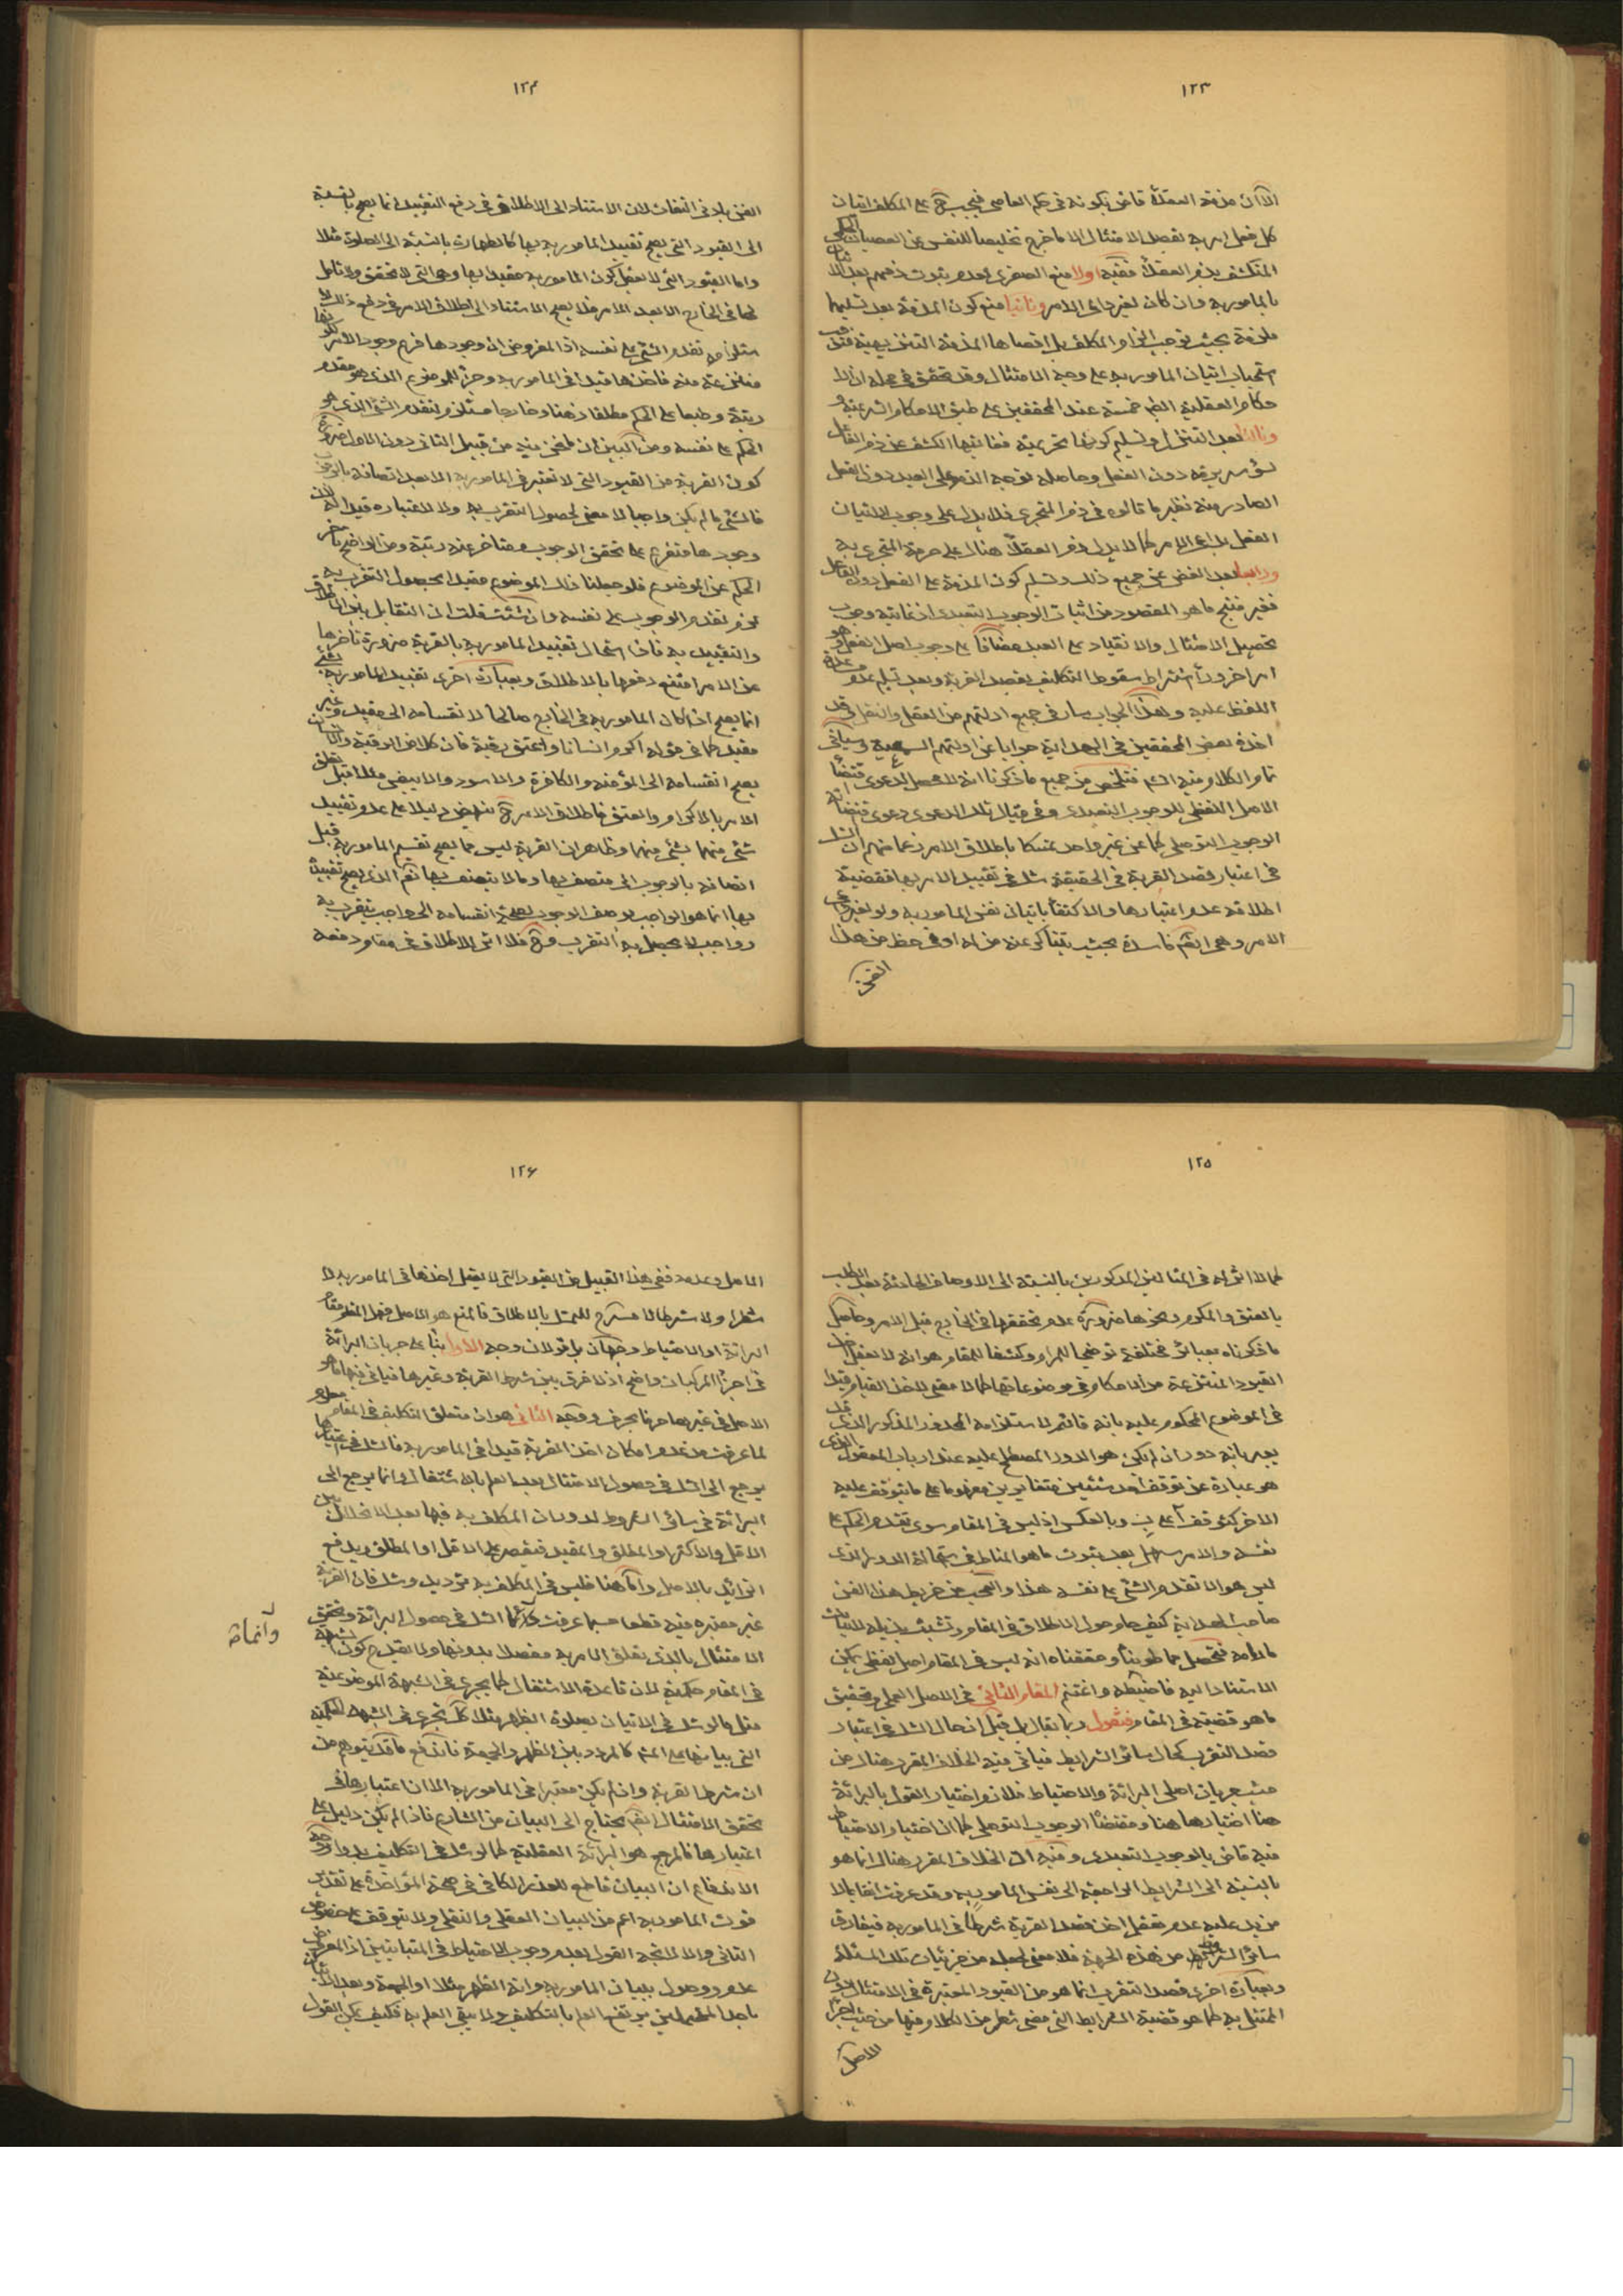 ١٢٣
الا ان مذمة العقلاء قاض بكونه في حكم العاصي فيجب ح على المكلف اتيان
كل فعل امر به بقصد الامتثال الا ما خرج تخليصا للنفس عن العصيان
المنكشف بذم العقلاء ففيه اولا منع الصغرى لعدم ثبوت ذمهم بعد
بالمامور به وان كان لغير داعي الامر وثانيا منع كون المذمة بعد تسليمها
ملزمة بحيث توجب الزام المكلف بل اقصاها المذمة التنزيهية
استحباب اتيان المامور به على وجه الامتثال وقد تحقق في محله ان الا
حكام العقلية ايضا خمسة عند المحققين على طبق الاحكام الشرعية و
وثالثا بعد التنزل وتسليم كونها تحريمية فغايتها الكشف عن ذم الفاعل
لسوء سريرته دون الفعل وحاصله توجه الذم على العبد دون الفعل
الصادر منه نظير ما قالوه في ذم المتجري فلا يدل على وجوب الاتيان
الفعل بداعي الامر كما لا يدل ذم العقلاء هناك على حرمة المتجرى به
ورابعا بعد الغض عن جميع ذلك وتسليم كون المذمة على الفعل دون الفاعل
فغير منتج ما هو المقصود من اثبات الوجوب التعبدي اذ غايته وجوب
تحصيل الامتثال والانقياد على العبد مضافا على وجوب اصل الفعل وهو
امر اخر وراء اشتراط سقوط التكليف بقصد القربة وبعد تسليم عدم
اللفظ عليه وهذا الجواب سار في جميع ادلتهم من العقل والنقل وقد
اخذه بعض المحققين في الهداية جوابا عن ادلتهم السمعية وسياتي
تمام الكلام فيه انشم فتلخص من جميع ما ذكرنا انه لا محصل لدعوى اقتضاء
الاصل اللفظي للوجوب التعبدي وفي قبال تلك الدعوى دعوى اقتضائه
الوجوب التوصلي كما عن غير واحد تمسكا باطلاق الامر زعما منهم ان الشك
في اعتبار قصد القربة في الحقيقة شك في تقييد الامر بها فقضية
اطلاقه عدم اعتبارها والاكتفاء باتيان نفس المامور به ولو لغير داعي
الامر وهي ايضا فاسدة بحيث يتباكى عنه من له اوفى حظ من هذا
الفن
١٢٤
الفن بادنى التفات لان الاستناد الى الاطلاق في دفع التقييد انما يصح بالنسبة
الى القيود التي يصح تقييد المامور به بها كالطهارة بالنسبة الى الصلوة مثلا
واما القيود التي لا يعقل كون المامور به مقيدا بها وهي التي لا تحقق ولا تاصل
لها في الخارج الا بعد الامر فلا يصح الاستناد الى اطلاق الامر في دفع ذلك لا
ستلزامه تقدم الشيء على نفسه اذ المفروض ان وجودها فرع وجود الامر
منتزعة منه فاخذها قيدا في المامور به وجزء للموضوع الذي هو مقدم
رتبة وطبعا على الحكم مطلقا ذهنا وخارجا مستلزم لتقدم الشيء الذي هو
الحكم على نفسه ومن البين ان ما نحن فيه من قبيل الثاني دون الاول ضرورة
كون القربة من القيود التي لا تعتبر في المامور به الا بعد اتصافه بالوجوب
فالشيء ما لم يكن واجبا لا معنى لحصول التقرب به ولا لاعتباره قيدا له لان
وجودها متفرع على تحقق الوجوب ومتاخر عنه رتبة ومن الواضح تاخر
الحكم عن الموضوع فلو جعلنا ذلك الموضوع مقيدا بحصول التقرب به
لزم تقدم الوجوب على نفسه وان شئت قلت ان التقابل بين الاطلاق
والتقييد به فاذا استحال تقييد المامور به بالقربة ضرورة تاخرها
عن الامر امتنع دفعها بالاطلاق وبعبارة اخرى تقييد المامور به بشيء
انما يصح اذا كان المامور به في الخارج صالحا لانقسامه الى مقيد وغير
مقيد كما في قوله اكرم انسانا واعتق رقبة فان كلا من الرقبة والانسان
يصح انقسامه الى المؤمنة والكافرة والاسود والابيض مثلا قبل تعلق
الامر بالاكرام والعتق فاطلاق الامر ح ينهض دليلا على عدم تقييد
شيء منهما بشيء منها وظاهر ان القربة ليس مما يصح تقسيم المامور به قبل
اتصافه بالوجوب الى متصف بها وما لا يتصف بها نعم الذي يصح تقييده
بها انما هو الواجب بوصف الوجوب لصحة انقسامه الى واجب يتقرب به
وواجب لا يحصل به التقرب وح فلا اثر للاطلاق في مقام دفعه
١٢٥
كما لا اثر له في المثالين المذكورين بالنسبة الى الاوصاف الحادثة بعد الطلب
بالعتق والمكرم ونحوها ضرورة عدم تحققها في الخارج قبل الامر وحاصل
ما ذكرناه بعبائر مختلفة توضيحا للمرام وكشفا للمقام هو انه لا يعقل اخذ
القيود المنتزعة من الاحكام في موضوعاتها كما لا معنى لاخذ القيام قيدا
في الموضوع المحكوم عليه بانه قائم لاستلزامه المحذور المذكور الذي قد
يعبر بانه دور ان لم يكن هو الدور المصطلح عليه عند ارباب المعقول الذي
هو عبارة عن توقف احد شيئين متغايرين مفهوما على ما يتوقف عليه
الاخر كتوقف آ على ب وبالعكس اذ ليس في المقام سوى تقدم الحكم على
نفسه والامر سهل بعد ثبوت ما هو المناط في استحالة الدور الذي
ليس هو الا تقدم الشيء على نفسه هذا والعجب من خريط هذا الفن
صاحب الهداية كيف حام حول الاطلاق في المقام وتشبث بذيله لاثبات
ما رامه فتحصل مما طويناه وحققناه انه ليس في المقام اصل لفظي يمكن
الاستناد اليه فاضبطه واغتنم المقام الثاني في الاصل العملي وتحقيق
ما هو قضيته في المقام فنقول ربما يقال بل قيل ان حال الشك في اعتبار
قصد التقرب كحال سائر الشرايط فياتي فيه الخلاف المقرر هناك من
حيث جريان اصلي البرائة والاحتياط فلازم اختيار القول بالبرائة
هنا اختيارها هنا ومقتضاه الوجوب التوصلي كما ان اختيار الاحتياط
فيه قاض بالوجوب التعبدي وفيه ان الخلاف المقرر هناك انما هو
بالنسبة الى الشرايط الراجعة الى نفس المامور به وقد عرفت انفا بما لا
مزيد عليه عدم تعقل اخذ قصد القربة شرطا في المامور به فيفارق
سائر الشرايط من هذه الجهة فلا معنى لجعله من جزئيات تلك المسئلة
وبعبارة اخرى قصد التقرب انما هو من القيود المعتبرة في الامتثال دون
الممتثل به كما هو قضية الشرايط التي مضى شطر من الكلام فيها من حيث اجراء
الاصل
١٢٦
الاصل وعدمه ففي هذا القبيل من القيود التي لا يعقل اخذها في المامور به لا
شطرا ولا شرطا لا مسرح للتمسك بالاطلاق فالمتبع هو الاصل فهل المقام مقام
البرائة او الاحتياط وجهان بل قولان وجه الاول بناء على جريان البرائة
في اجزاء المركبات واضح اذ لا فرق بين شرط القربة وغيرها فياتي فيها ما هو
الاصل في غيرها حرفا بحرف ووجه الثاني هو ان متعلق التكليف في المقام معلوم
لما عرفت من عدم امكان اخذ القربة قيدا في المامور به فالشك في اعتبارها
يرجع الى الشك في حصول الامتثال بعد العلم بالاشتغال وانما يرجع الى
البرائة في سائر الشروط لدوران المكلف به فيها بعد الانحلال بين
الاقل والاكثر او المطلق والمقيد فيقتصر على الاقل او المطلق ويدفع
الزائد بالاصل واما هنا فليس في المكلف به ترديد وشك فان القربة
غير معتبرة فيه قطعا حسبما عرفت وانما الشك في حصول البرائة وتحقق
وانما
الامتثال بالذي تعلق الامر به مفصلا بدونها ولا يقدح كون الشبهة
في المقام حكمية لان قاعدة الاشتغال كما يجري في الشبهة الموضوعية
مثل ما لو شك في الاتيان بصلوة الظهر مثلا كك تجري في الشبهة الحكمية
التي بيانها على الشارع كالمردد بين الظهر والجمعة فاندفع ما قد يتوهم من
ان شرط القربة وان لم يكن معتبرا في المامور به الا ان اعتبارها في
تحقق الامتثال ايضا يحتاج الى البيان من الشارع فاذا لم يكن دليل على
اعتبارها فالمرجع هو البرائة العقلية كما لو شك في التكليف بدوا وجه
الاندفاع ان البيان قاطع للعذر الكافي في صحة المؤاخذة على تقدير
فوت المامور به اعم من البيان العقلي والنقلي ولا يتوقف على خصوص
الثاني والا لاتجه القول بعدم وجوب الاحتياط في المتباينين اذ المفروض
عدم وصول بيان المامور به وانه الظهر مثلا او الجمعة وبعد الاتيان
باحد المحتملين يرتفع العلم بالتكليف ولا يبقى العلم به فكيف يمكن القول